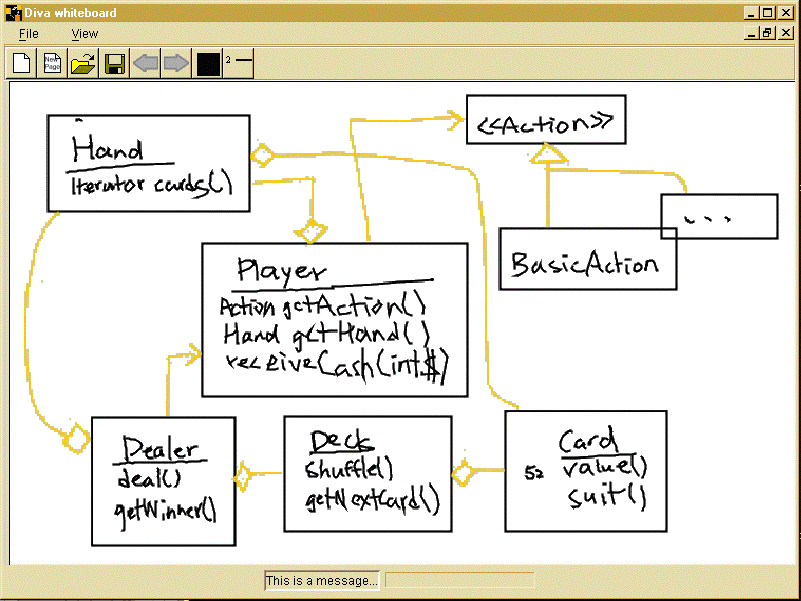 Diva whiteboard
File View
New Page
2
Hand
Iterator cards()
<<Action>>
...
BasicAction
Player
Action getAction()
Hand getHand()
receiveCash(int $)
Dealer
deal()
getWinner()
Deck
shuffle()
getNextCard()
Card
52 value()
suit()
This is a message...